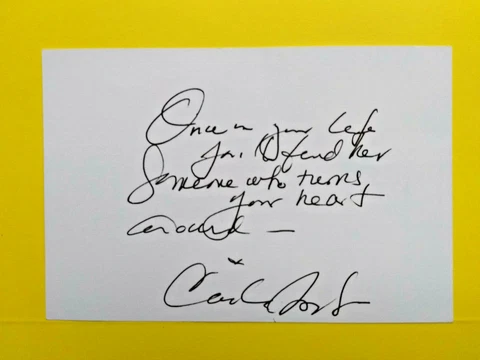 Once in your life
you'll find her
Someone who turns
your heart
around —
x